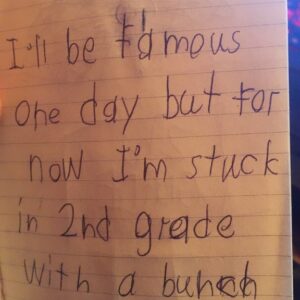 I'll be famous
one day but for
now I'm stuck
in 2nd grade
with a bunch